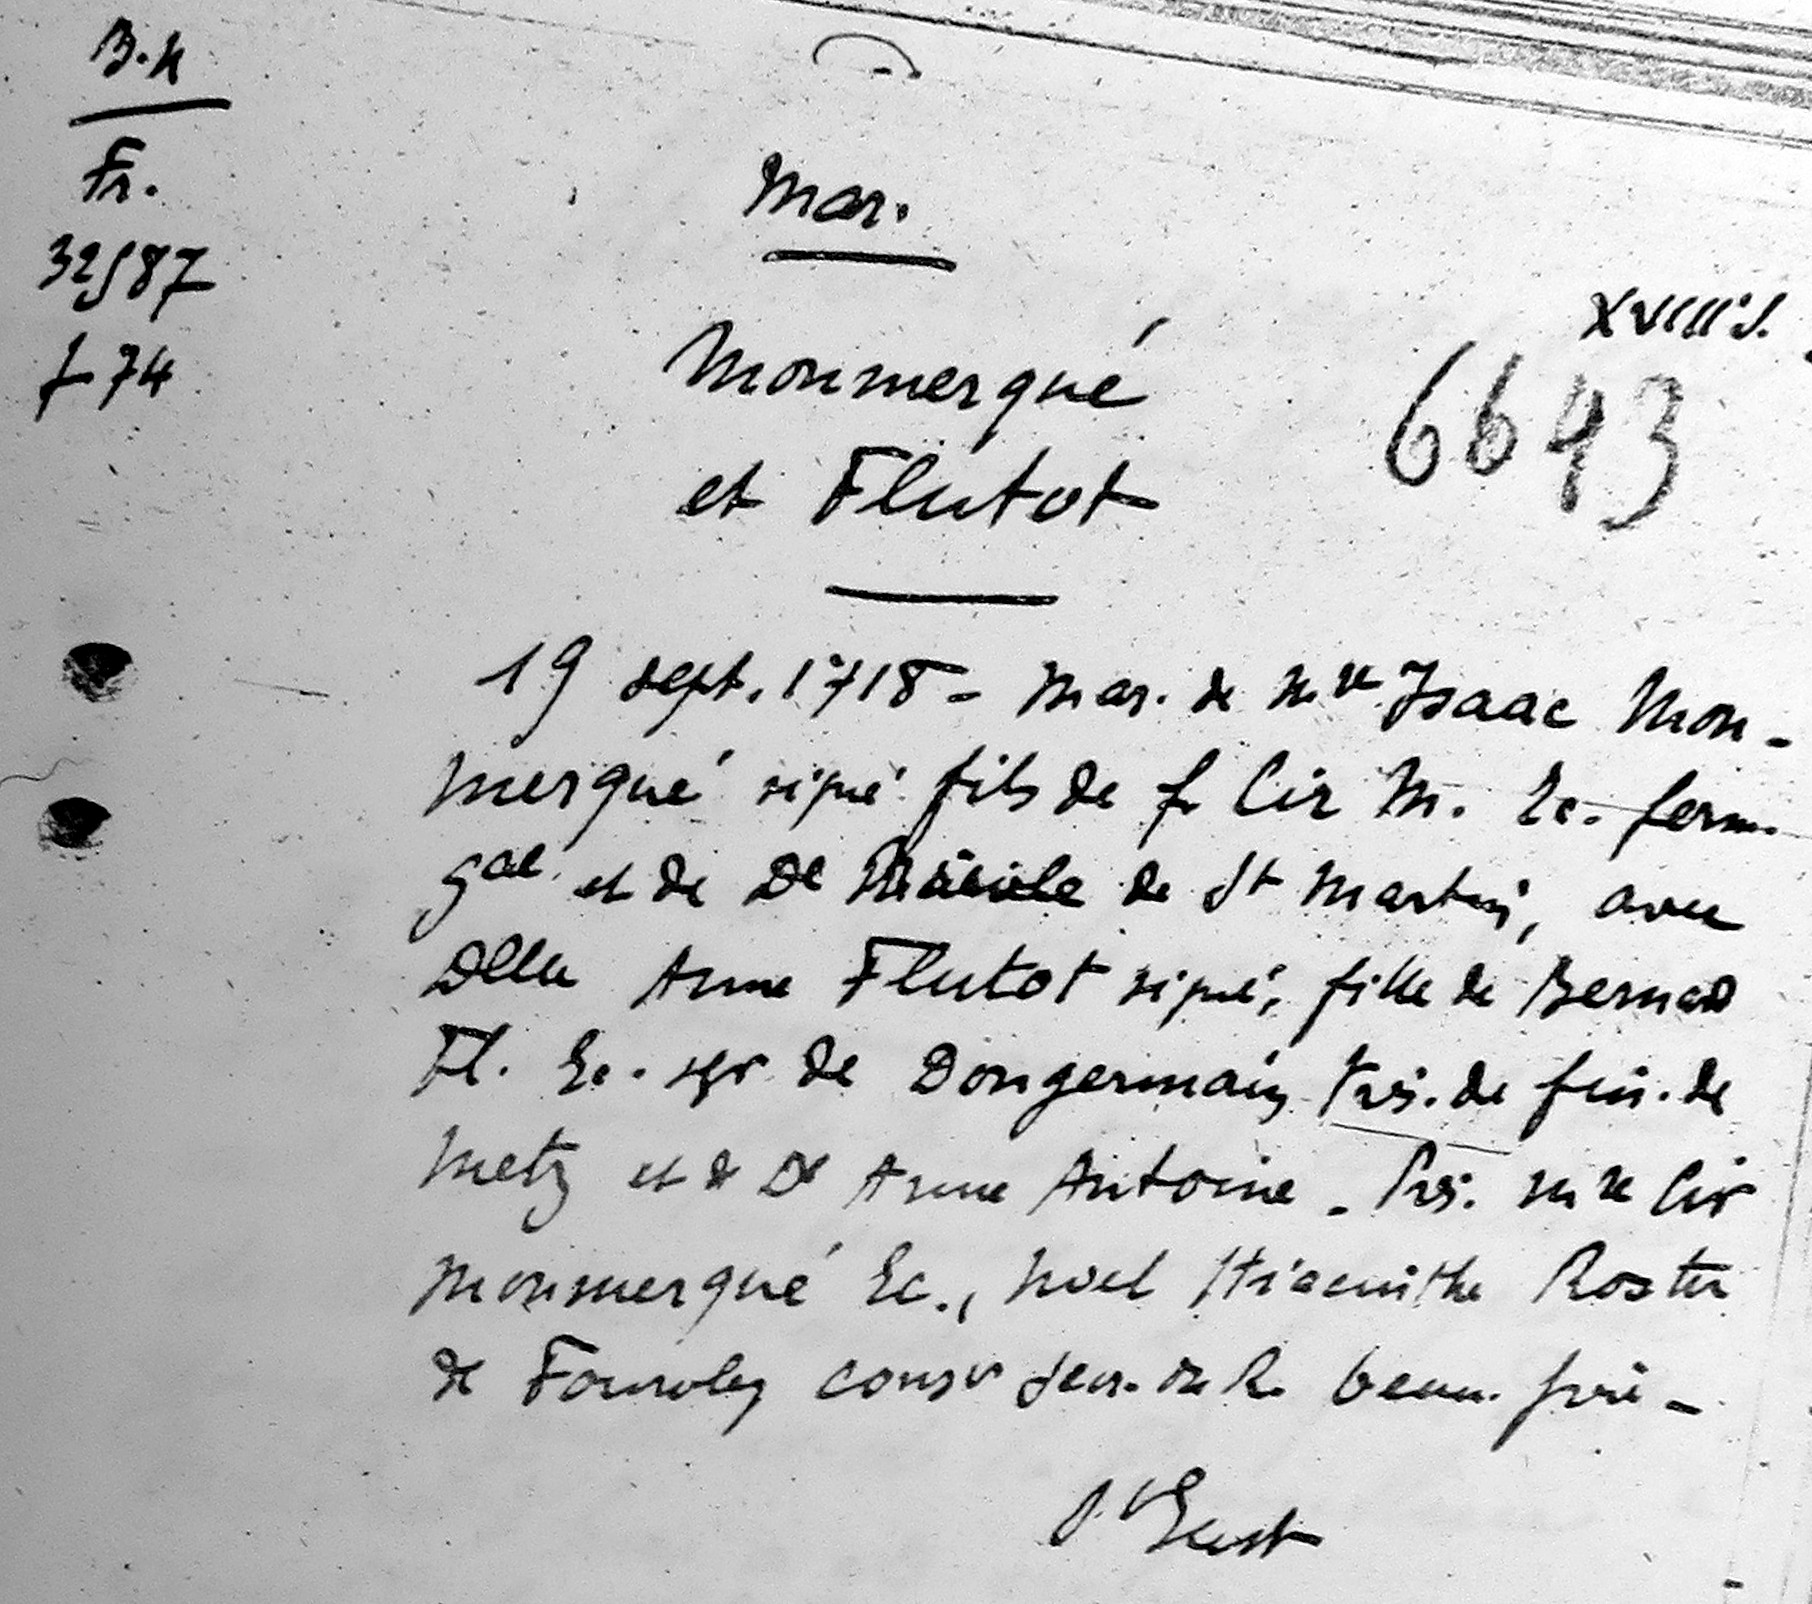 B.N
Fr.
32587
f 74
Mar.
XVIII s.
6643
Monmerqué
et Flutot
19 sept. 1718 - Mar. de Mre Isaac Mon-
merqué signé fils de f Cir M. Ec. ferm.
gal et de De de St Martin, avec
Dlle Anne Flutot signé, fille de Bernard
Fl. Ec. sgr de Dongermain trés. de fin. de
Metz et de De Anne Antoine. Prés. Mre Cir
Monmerqué Ec., Noel Hiacinthe Roster
de consr secr. du R. beau. frère -
St Eust